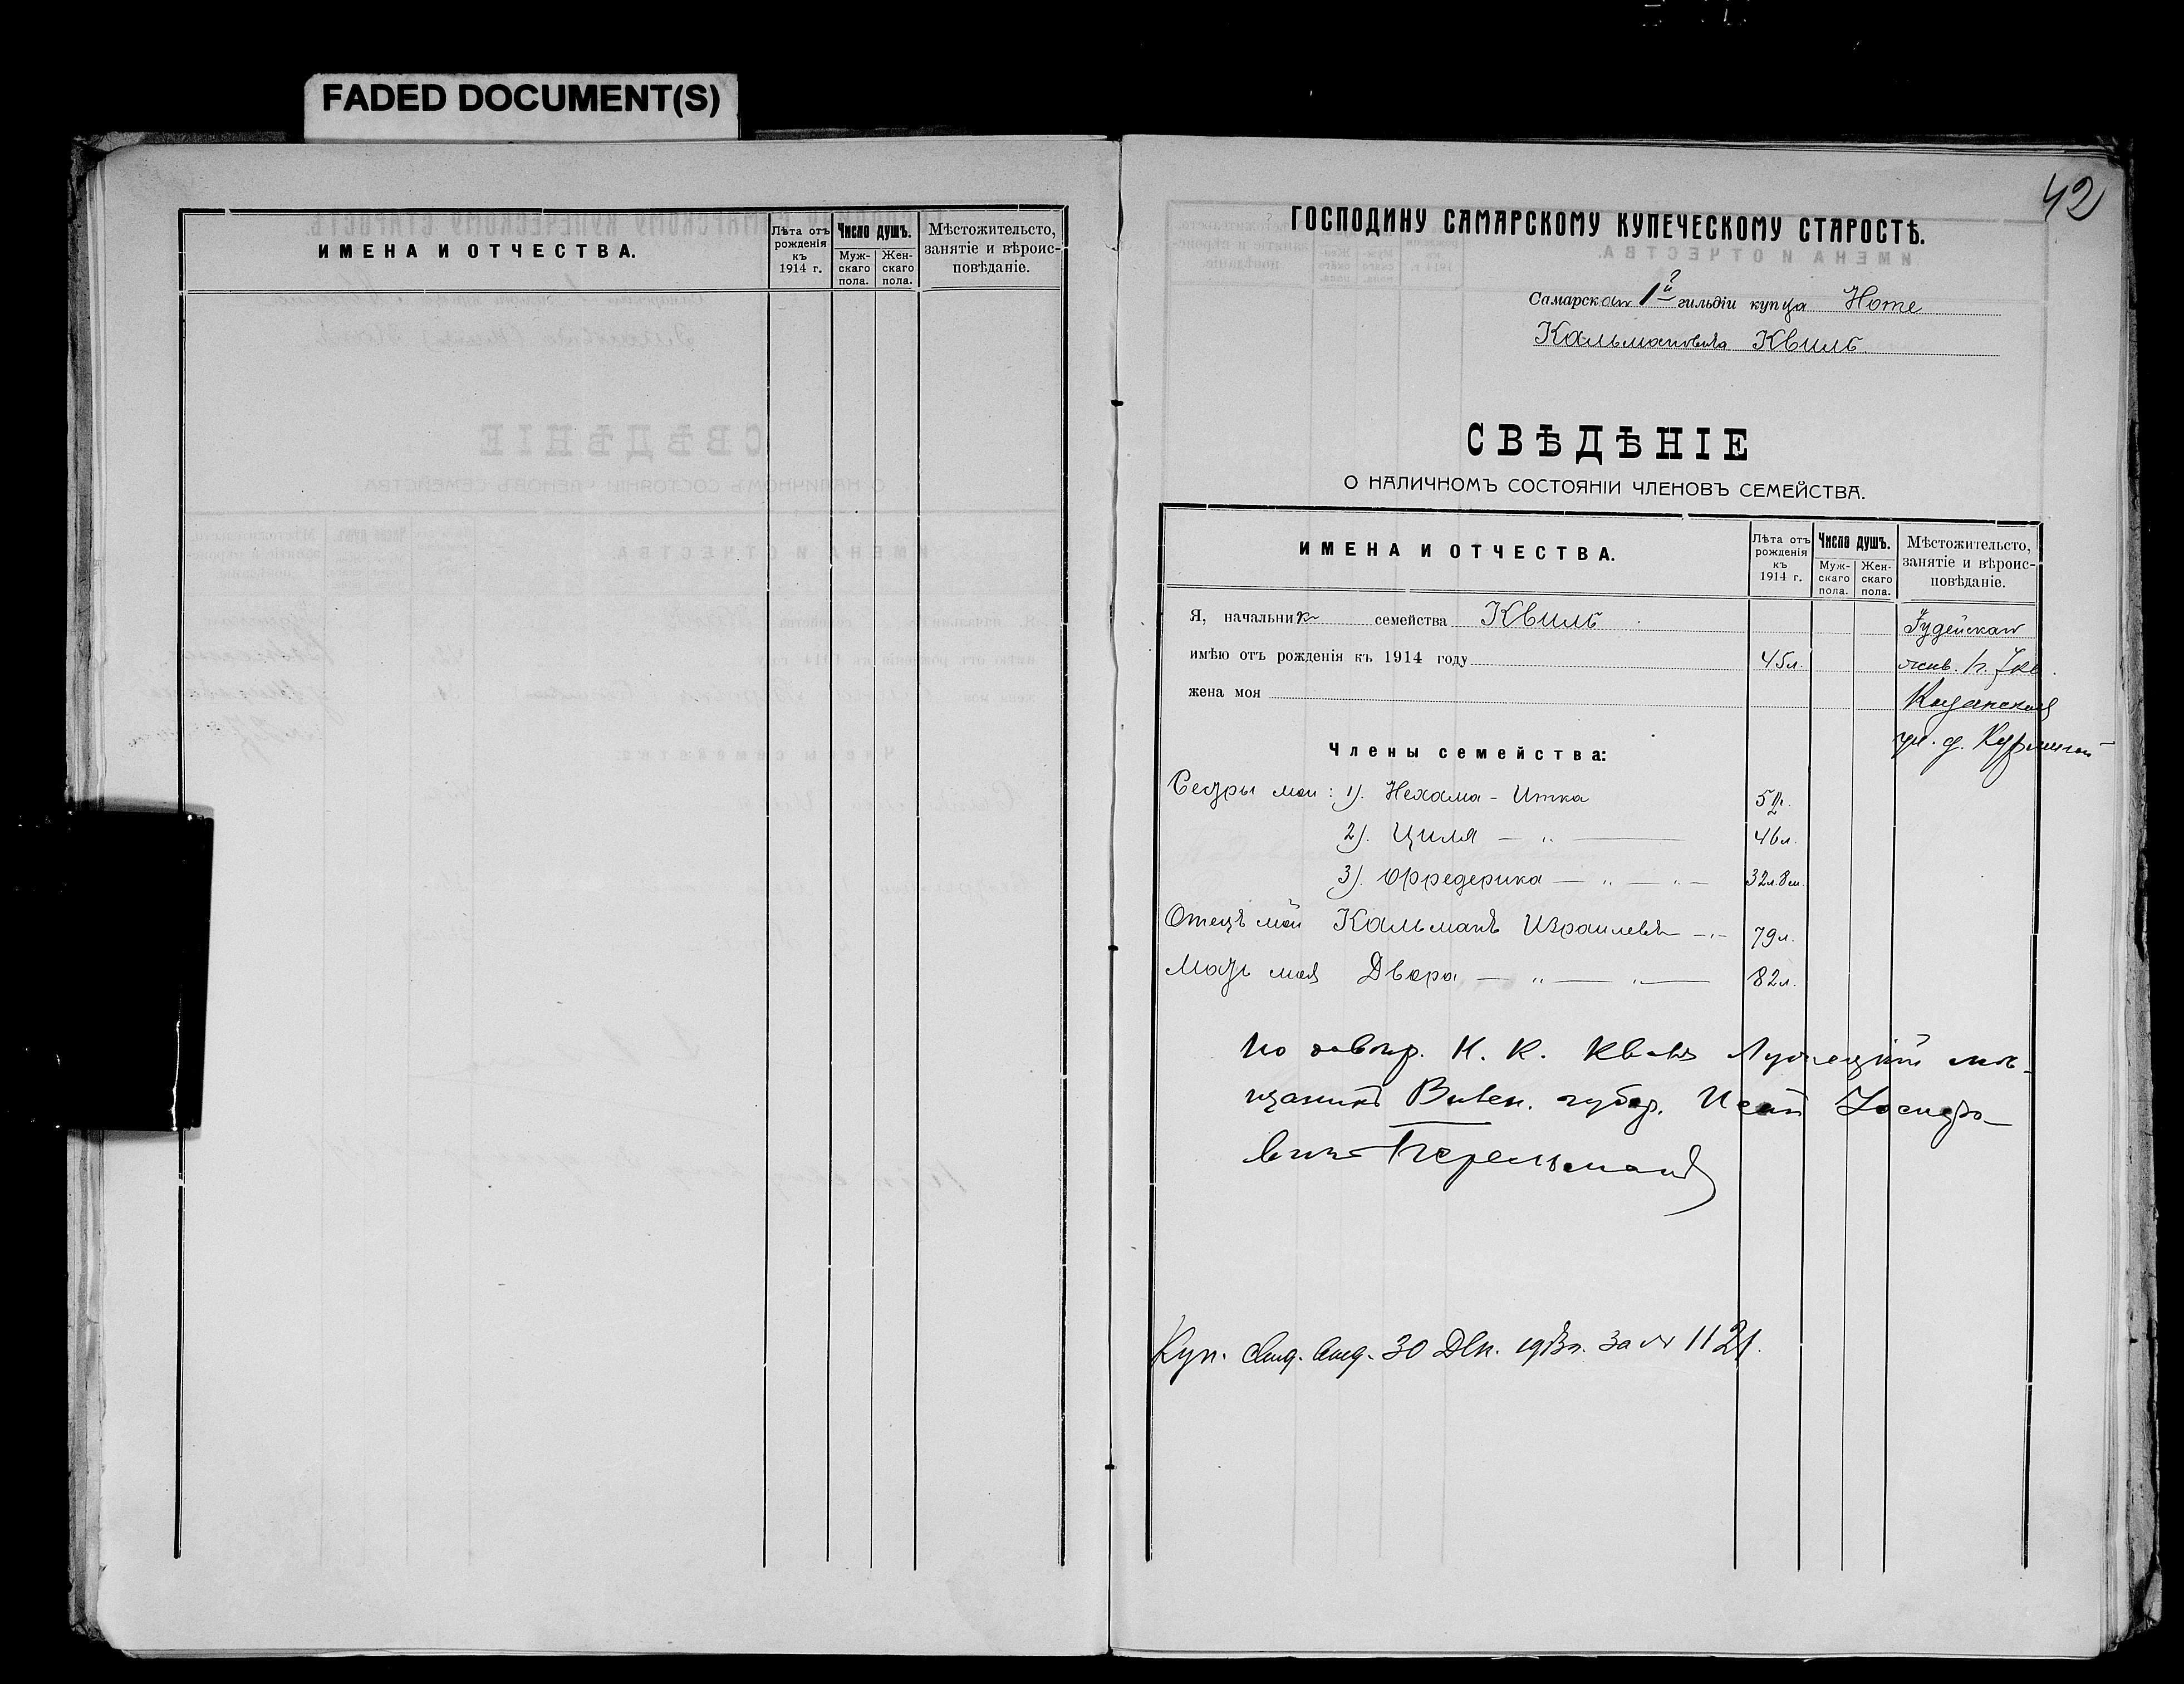 FADED DOCUMENT(S)
ИМЕНА И ОТЧЕСТВА.
Лѣта отъ рожденія къ 1914 г.
Число душъ.
Мужскаго пола.
Женскаго пола.
Мѣстожительсто, занятіе и вѣроисповѣданіе.
42
ГОСПОДИНУ САМАРСКОМУ КУПЕЧЕСКОМУ СТАРОСТѢ.
Самарскаго 1й гильдіи купца Ноте
Кальмановича Квиль
СВѢДѢНІЕ
О НАЛИЧНОМЪ СОСТОЯНІИ ЧЛЕНОВЪ СЕМЕЙСТВА.
ИМЕНА И ОТЧЕСТВА.
Лѣта отъ рожденія къ 1914 г.
Число душъ.
Мужскаго пола.
Женскаго пола.
Мѣстожительсто, занятіе и вѣроисповѣданіе.
Я, начальникъ семейства Квиль
Іудейская
имѣю отъ рожденія къ 1914 году 45 л.
жена моя
Казанская
ул. д.
Члены семейства:
Сестры мои: 1). Нехама - Итка
2). Циля — „ — 46 л.
3). Фредерика — „ — „ — 32 л. 8 м.
Отецъ мой Кальманъ Израилевъ — „ — 79 л.
Мать моя Двера — „ — „ — 82 л.
По довѣр. Н. К. Квиль мѣ-
щанинъ Вилен. губер. Исай Іосифо-
вичъ Перельманъ
Куп. Свид. выд. 30 Дек. 1913 г. за № 1121.